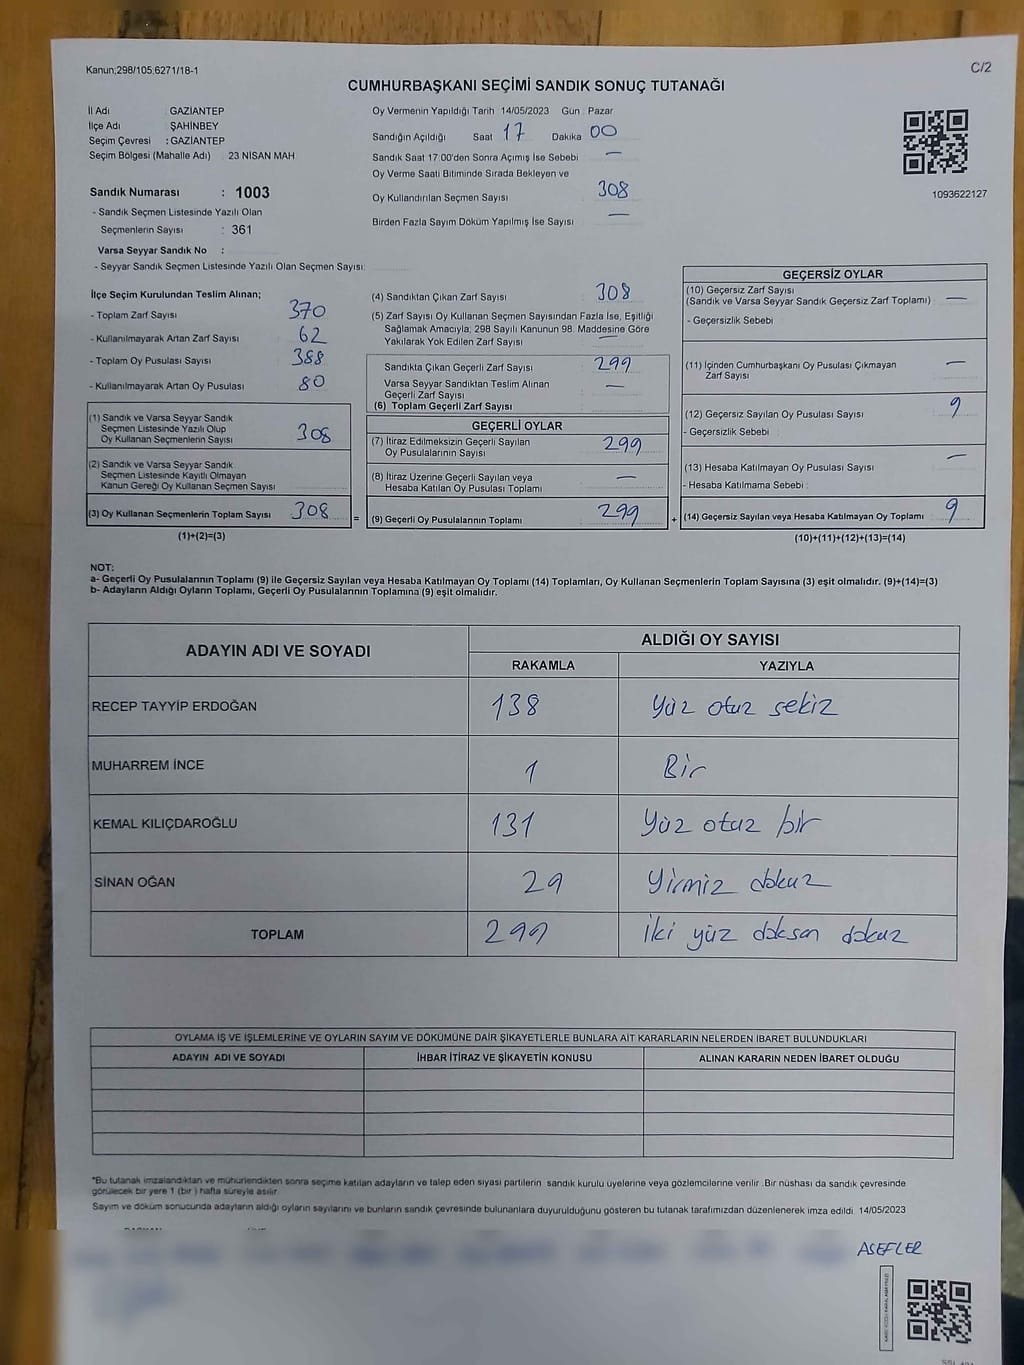 Kanun;298/105,6271/18-1
C/2
CUMHURBAŞKANI SEÇİMİ SANDIK SONUÇ TUTANAĞI
İl Adı GAZİANTEP
İlçe Adı ŞAHİNBEY
Seçim Çevresi : GAZİANTEP
Seçim Bölgesi (Mahalle Adı) 23 NİSAN MAH
Sandık Numarası : 1003
- Sandık Seçmen Listesinde Yazılı Olan
Seçmenlerin Sayısı : 361
Varsa Seyyar Sandık No :
- Seyyar Sandık Seçmen Listesinde Yazılı Olan Seçmen Sayısı:
Oy Vermenin Yapıldığı Tarih 14/05/2023 Gün : Pazar
Sandığın Açıldığı Saat 17 Dakika 00
Sandık Saat 17:00'den Sonra Açımış İse Sebebi —
Oy Verme Saati Bitiminde Sırada Bekleyen ve
Oy Kullandırılan Seçmen Sayısı 308
Birden Fazla Sayım Döküm Yapılmış İse Sayısı —
1093622127
İlçe Seçim Kurulundan Teslim Alınan;
- Toplam Zarf Sayısı 370
- Kullanılmayarak Artan Zarf Sayısı 62
- Toplam Oy Pusulası Sayısı 388
- Kullanılmayarak Artan Oy Pusulası 80
(1) Sandık ve Varsa Seyyar Sandık
Seçmen Listesinde Yazılı Olup
Oy Kullanan Seçmenlerin Sayısı 308
(2) Sandık ve Varsa Seyyar Sandık
Seçmen Listesinde Kayıtlı Olmayan
Kanun Gereği Oy Kullanan Seçmen Sayısı
(3) Oy Kullanan Seçmenlerin Toplam Sayısı 308
(1)+(2)=(3)
(4) Sandıktan Çıkan Zarf Sayısı 308
(5) Zarf Sayısı Oy Kullanan Seçmen Sayısından Fazla İse, Eşitliği
Sağlamak Amacıyla; 298 Sayılı Kanunun 98. Maddesine Göre
Yakılarak Yok Edilen Zarf Sayısı —
Sandıkta Çıkan Geçerli Zarf Sayısı 299
Varsa Seyyar Sandıktan Teslim Alınan
Geçerli Zarf Sayısı —
(6) Toplam Geçerli Zarf Sayısı
GEÇERLİ OYLAR
(7) İtiraz Edilmeksizin Geçerli Sayılan
Oy Pusulalarının Sayısı 299
(8) İtiraz Üzerine Geçerli Sayılan veya
Hesaba Katılan Oy Pusulası Toplamı —
= (9) Geçerli Oy Pusulalarının Toplamı 299
GEÇERSİZ OYLAR
(10) Geçersiz Zarf Sayısı
(Sandık ve Varsa Seyyar Sandık Geçersiz Zarf Toplamı) —
- Geçersizlik Sebebi
(11) İçinden Cumhurbaşkanı Oy Pusulası Çıkmayan
Zarf Sayısı —
(12) Geçersiz Sayılan Oy Pusulası Sayısı 9
- Geçersizlik Sebebi :
(13) Hesaba Katılmayan Oy Pusulası Sayısı —
- Hesaba Katılmama Sebebi :
+ (14) Geçersiz Sayılan veya Hesaba Katılmayan Oy Toplamı 9
(10)+(11)+(12)+(13)=(14)
NOT:
a- Geçerli Oy Pusulalarının Toplamı (9) ile Geçersiz Sayılan veya Hesaba Katılmayan Oy Toplamı (14) Toplamları, Oy Kullanan Seçmenlerin Toplam Sayısına (3) eşit olmalıdır. (9)+(14)=(3)
b- Adayların Aldığı Oyların Toplamı, Geçerli Oy Pusulalarının Toplamına (9) eşit olmalıdır.
ADAYIN ADI VE SOYADI ALDIĞI OY SAYISI
RAKAMLA YAZIYLA
RECEP TAYYİP ERDOĞAN 138 Yüz otuz sekiz
MUHARREM İNCE 1 Bir
KEMAL KILIÇDAROĞLU 131 Yüz otuz bir
SİNAN OĞAN 29 Yirmiz dokuz
TOPLAM 299 iki yüz doksan dokuz
OYLAMA İŞ VE İŞLEMLERİNE VE OYLARIN SAYIM VE DÖKÜMÜNE DAİR ŞİKAYETLERLE BUNLARA AİT KARARLARIN NELERDEN İBARET BULUNDUKLARI
ADAYIN ADI VE SOYADI İHBAR İTİRAZ VE ŞİKAYETİN KONUSU ALINAN KARARIN NEDEN İBARET OLDUĞU
*Bu tutanak imzalandıktan ve mühürlendikten sonra seçime katılan adayların ve talep eden siyasi partilerin sandık kurulu üyelerine veya gözlemcilerine verilir. Bir nüshası da sandık çevresinde
görülecek bir yere 1 (bir) hafta süreyle asılır.
Sayım ve döküm sonucunda adayların aldığı oyların sayılarını ve bunların sandık çevresinde bulunanlara duyurulduğunu gösteren bu tutanak tarafımızdan düzenlenerek imza edildi. 14/05/2023
ASEFLER